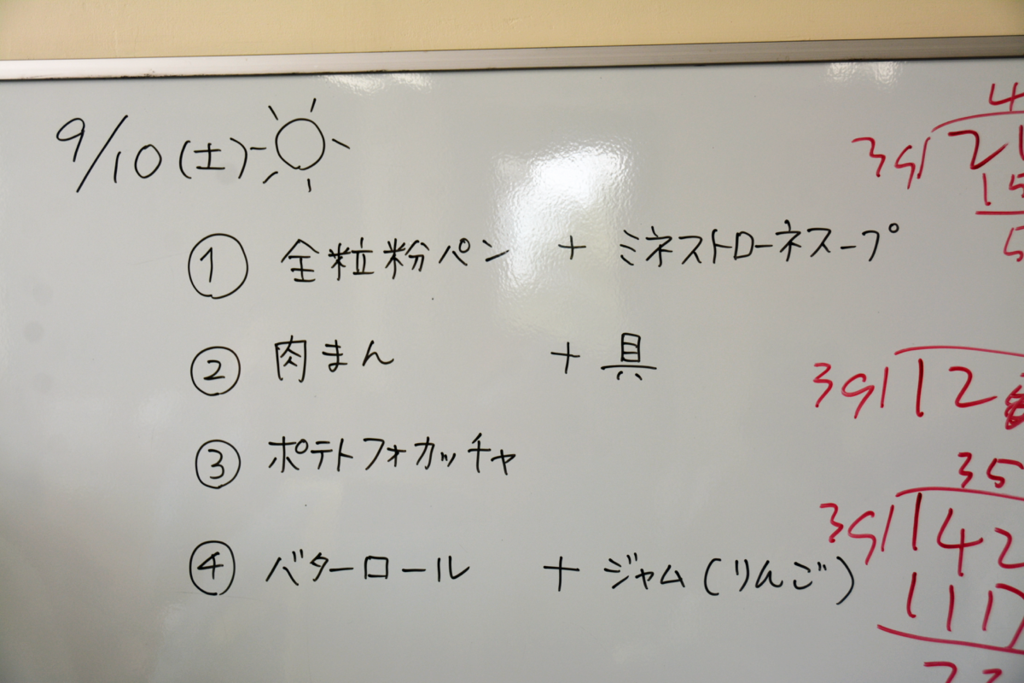 9/10(土)
① 全粒粉パン + ミネストローネスープ
② 肉まん + 具
③ ポテトフォカッチャ
④ バターロール + ジャム(りんご)
4
39
15
5
39 12
35
39 142
117